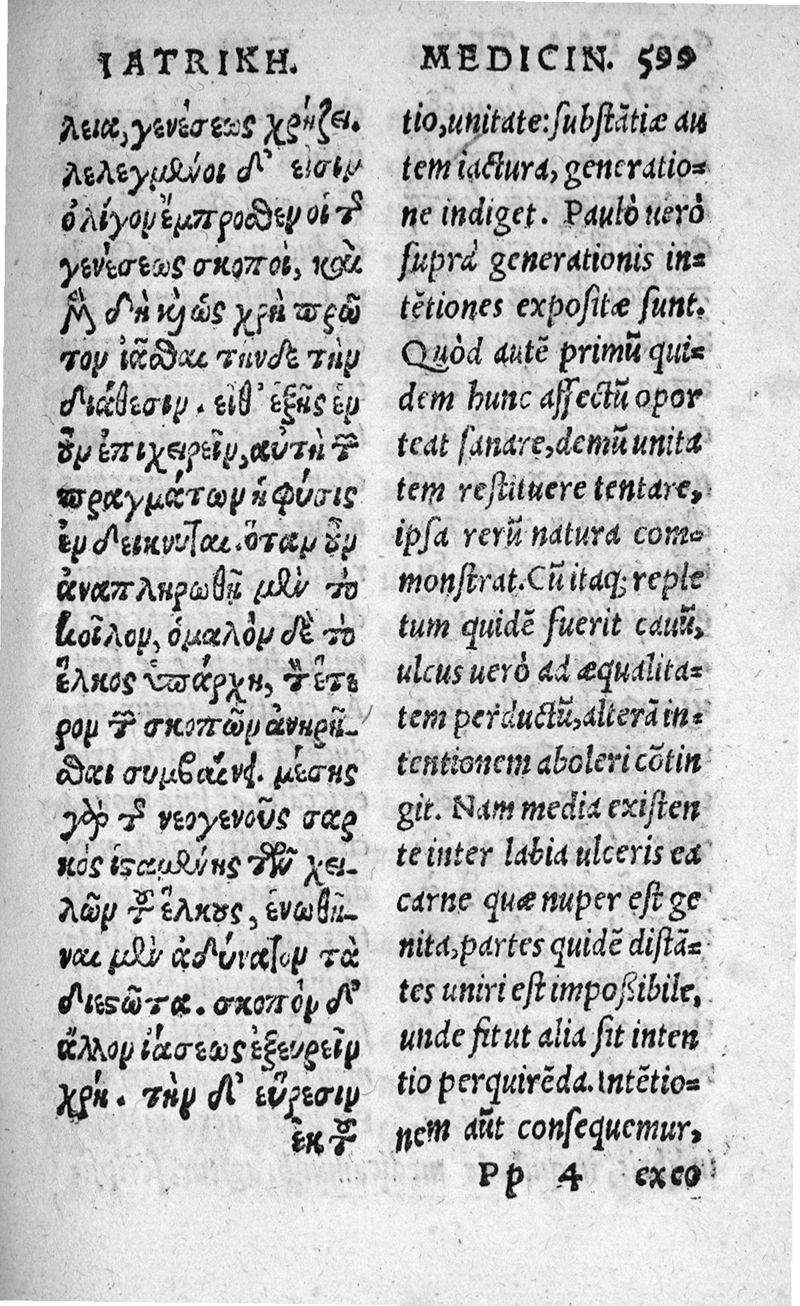 ΙΑΤΡΙΚΗ.
λεια, γενέσεως χρήζει.
λελεγμένοι δ' εἰσὶν
ὀλίγον ἔμπροσθεν οἱ τῆς
γενέσεως σκοποὶ, καὶ
δὴ καὶ ὡς χρὴ πρῶ
τον ἰᾶσθαι τήνδε τὴν
διάθεσιν. εἶθ' ἑξῆς ἑν
οῦν ἐπιχειρεῖν, αὐτὴ τῶν
πραγμάτων ἡ φύσις
ἐνδείκνυται. ὅταν οὖν
ἀναπληρωθῇ μὲν τὸ
κοῖλον, ὁμαλὸν δὲ τὸ
ἕλκος ὑπάρχῃ, τὸν ἕτε
ρον τῶν σκοπῶν ἀνῃρῆ-
σθαι συμβαίνει. μέσης
γὰρ τῆς νεογενοῦς σαρ
κὸς ἱσταμένης τῶν χει-
λῶν τοῦ ἕλκους, ἑνωθῆ-
ναι μὲν ἀδύνατον τὰ
διεστῶτα. σκοπὸν δ'
ἄλλον ἰάσεως ἐξευρεῖν
χρή. τὴν δ' εὕρεσιν
ἐκ τοῦ
MEDICIN. 599
tio, unitate: substãtiæ au
tem iactura, generatio=
ne indiget. Paulò uerò
suprà generationis in=
tẽtiones expositæ sunt.
Quòd autẽ primũ qui=
dem hunc affectũ opor
teat sanare, demũ unita
tem restituere tentare,
ipsa rerũ natura com=
monstrat. Cũ itaq; reple
tum quidẽ fuerit cauũ,
ulcus uerò ad æqualita=
tem perductũ, alterã in=
tentionem aboleri cõtin
git. Nam media existen
te inter labia ulceris ea
carne quæ nuper est ge
nita, partes quidẽ distã=
tes uniri est impoßibile,
unde fit ut alia sit inten
tio perquirẽda. Intẽtio=
nem aũt consequemur,
Pp 4 exeo